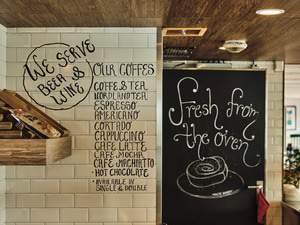 WE SERVE
BEER &
WINE
OUR COFFEES
COFFE & TEA
NORDLAND TEA
ESPRESSO
AMERICANO
CORTADO
CAPPUCCINO
CAFE LATTE
CAFE MOCHA
CAFE MACHIATTO
• HOT CHOCOLATE •
• AVAILABLE IN
SINGLE & DOUBLE
Fresh from
the oven